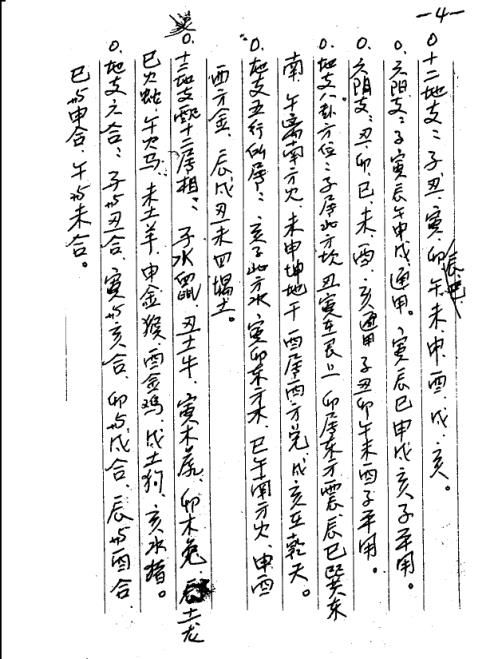 -4-
0.十二地支:子、丑、寅、卯、辰巳午、未、申、酉、戌、亥。
0.六阳支:子寅辰午申戌通用。寅辰巳申戌亥子平用。
0.六阴支:丑、卯、巳、未、酉、亥通用子丑卯午未酉子平用。
0.地支八卦方位:子居北方坎丑寅在艮上卯居东方震辰巳巽东
南、午离南方火、未申坤地干酉居西方兑、戌亥在乾天。
0.地支五行所属:亥子北方水、寅卯东方木、巳午南方火、申酉
西方金、辰戌丑未四墓土。
0.十二地支配十二属相:子水鼠、丑土牛、寅木虎、卯木兔、辰土龙
巳火蛇、午火马、未土羊、申金猴、酉金鸡、戌土狗、亥水猪。
0.地支六合:子与丑合、寅与亥合、卯与戌合、辰与酉合
巳与申合、午与未合。